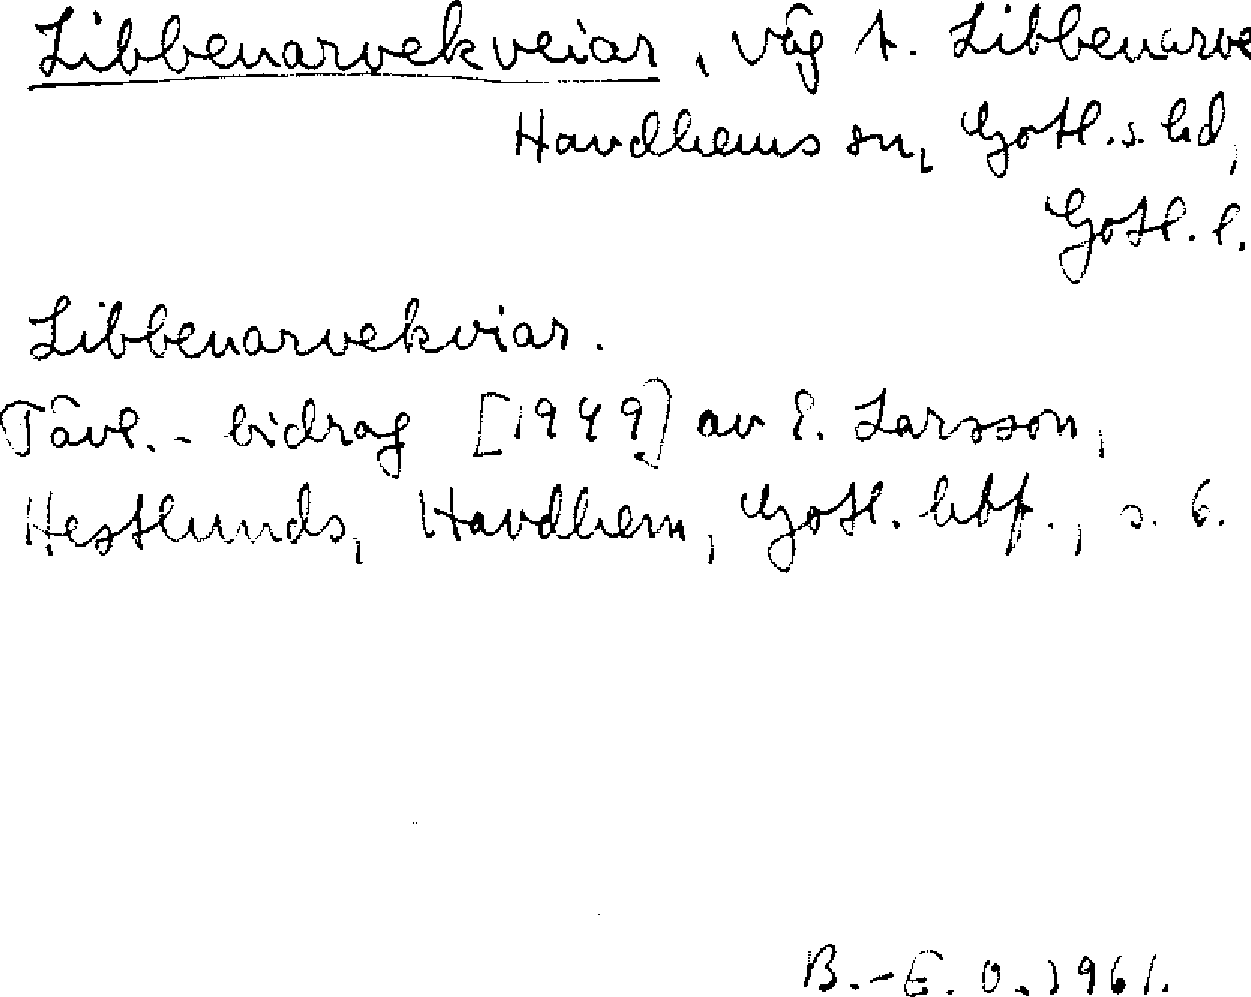 Libbenarvekveiar, väg t. Libbenarve
Havdhems sn, Gotl. s. hd,
Gotl. l.
Libbenarvekviar.
Tävl. - bidrag [1949] av E. Larsson,
Hestlunds, Havdhem, Gotl. hbf., s. 6.
B.-E. O. 1961.